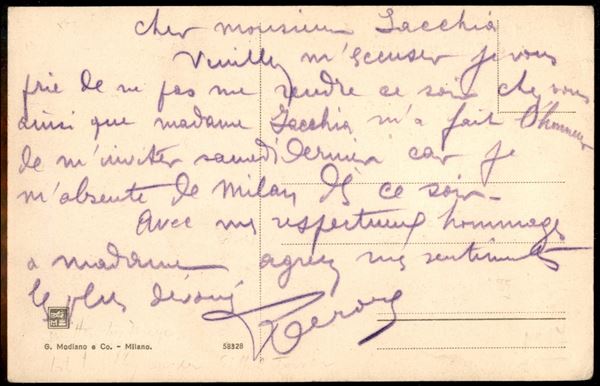 cher monsieur Sacchia
Veuillez m'Excuser je vous
prie de ne pas me rendre ce soir chez vous
ainsi que madame Sacchia m'a fait l'honneur
de m'inviter samedi dernier car je
m'absente de Milan dès ce soir -
Avec mes respectueux hommages
a madame agréez mes sentiments
les plus dévoués
G. Modiano e Co. - Milano.
58328